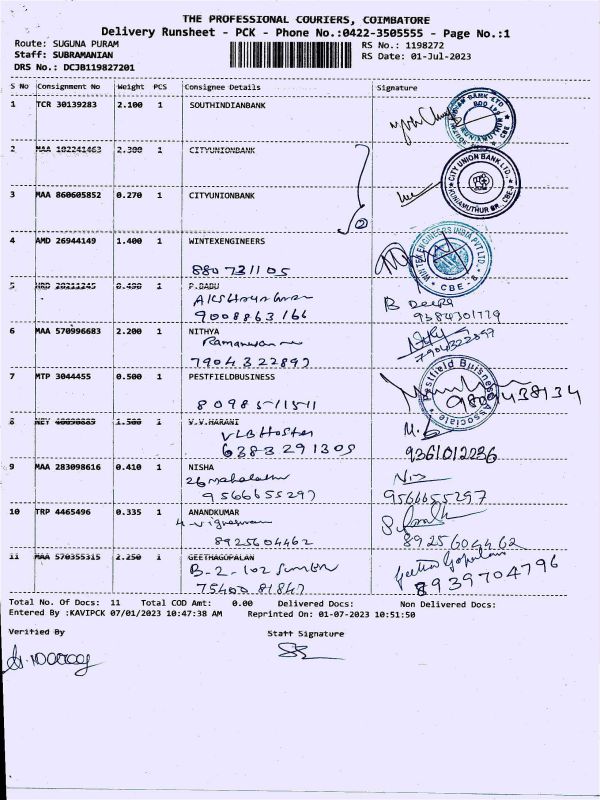 THE PROFESSIONAL COURIERS, COIMBATORE
Delivery Runsheet - PCK - Phone No.:0422-3505555 - Page No.:1
Route: SUGUNA PURAM
RS No.: 1198272
Staff: SUBRAMANIAN
RS Date: 01-Jul-2023
DRS No.: DCJB119827201
S No Consignment No Weight PCS Consignee Details Signature
1 TCR 30139283 2.100 1 SOUTHINDIANBANK
2 MAA 102241463 2.300 1 CITYUNIONBANK
CITY UNION BANK LTD.
KUNIAMUTHUR BR. CBE-8
3 MAA 860605852 0.270 1 CITYUNIONBANK
2
4 AMD 26944149 1.400 1 WINTEXENGINEERS
WINTEX ENGINEERS INDIA PVT LTD.
CBE - 8
880731105
5 HRD 20211245 0.490 1 P.BABU
9008863166
B Deepa
9384301779
6 MAA 570996683 2.200 1 NITHYA
7904322897
7904322897
7 MTP 3044455 0.500 1 PESTFIELDBUSINESS
Pestfield Buisness Associate
8098511511
9809438134
8 NEY 40090889 1.500 1 V.V.HARANI
VLB Hostel
6383291309
9361012236
9 MAA 283098616 0.410 1 NISHA
9566655297
9566655297
10 TRP 4465496 0.335 1 ANANDKUMAR
8925604462
8925604462
11 MAA 570355315 2.250 1 GEETHAGOPALAN
B-2-102
7540081847
Geetha Gopalan
8939704796
Total No. Of Docs: 11 Total COD Amt: 0.00 Delivered Docs: Non Delivered Docs:
Entered By :KAVIPCK 07/01/2023 10:47:38 AM Reprinted On: 01-07-2023 10:51:50
Verified By Staff Signature